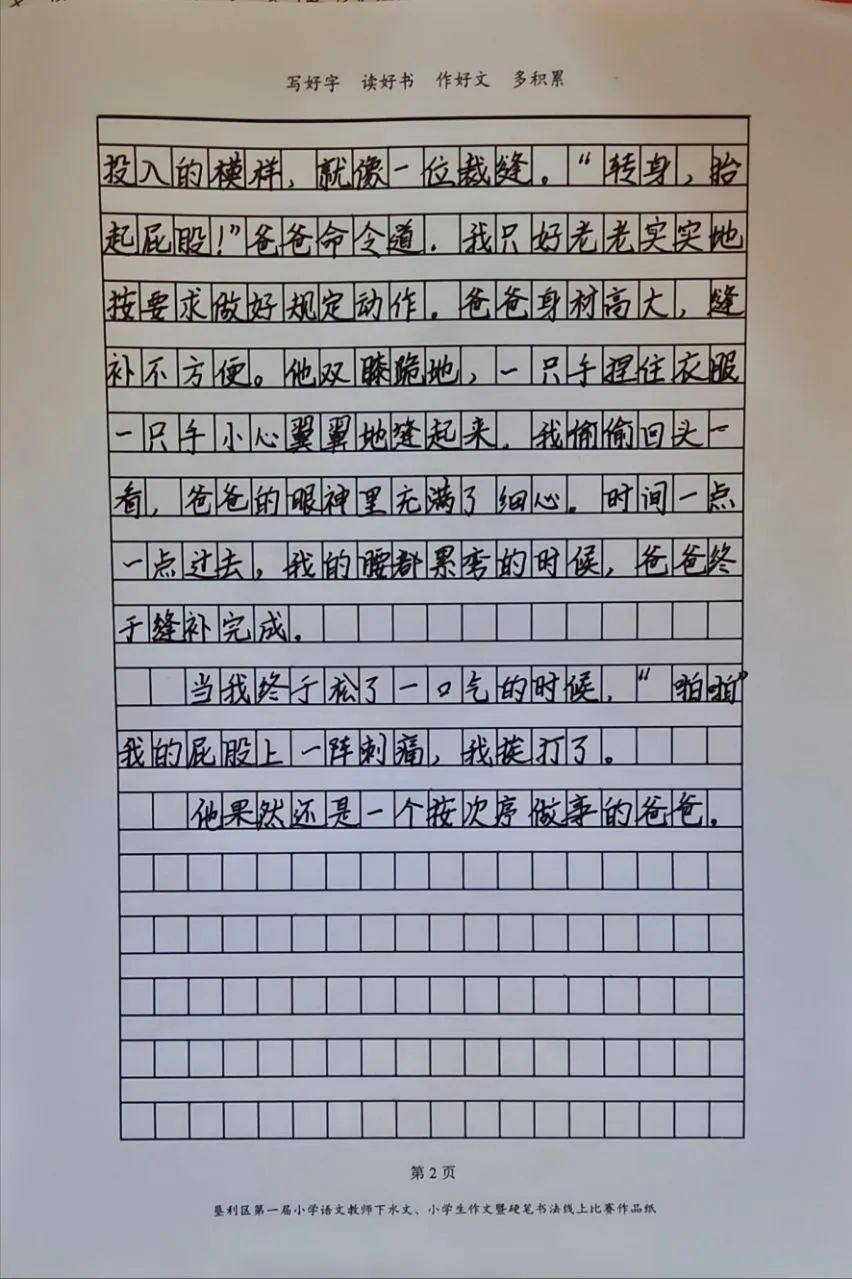 写好字 读好书 作好文 多积累
投入的模样，就像一位裁缝。“转身，抬
起屁股！”爸爸命令道．我只好老老实实地
按要求做好规定动作．爸爸身材高大，缝
补不方便。他双膝跪地，一只手捏住衣服
一只手小心翼翼地缝起来．我偷偷回头一
看，爸爸的眼神里充满了细心．时间一点
一点过去，我的腰都累弯的时候，爸爸终
于缝补完成．
当我终于松了一口气的时候，“啪啪”
我的屁股上一阵刺痛，我挨打了。
他果然还是一个按次序做事的爸爸．
第 2 页
垦利区第一届小学语文教师下水文、小学生作文暨硬笔书法线上比赛作品纸